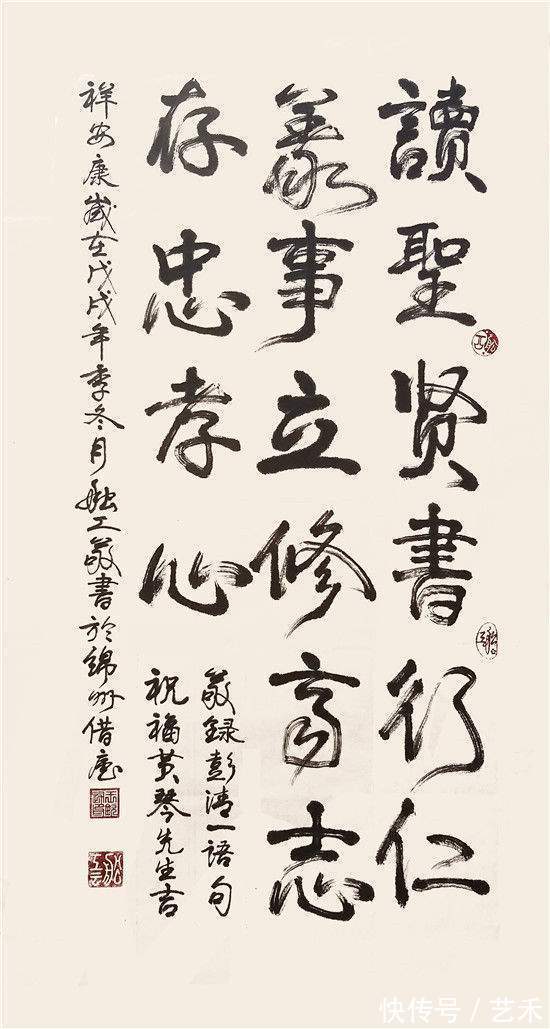 讀聖贤書行仁
義事立修齐志
存忠孝心
敬録彭清一語句
祝福黄琴先生吉
祥安康歲在戊戌年季冬月工敬書於綿州借庐
快传号/艺禾